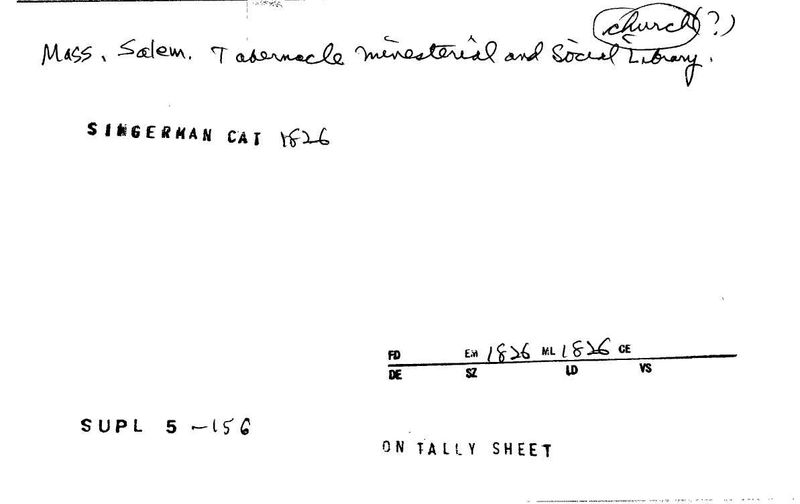 church(?)
Mass, Salem. Tabernacle Ministerial and Social Library.
SINGERMAN CAT 1826
FD EM 1826 ML 1826 CE
DE SZ LD VS
SUPL 5 -156
ON TALLY SHEET